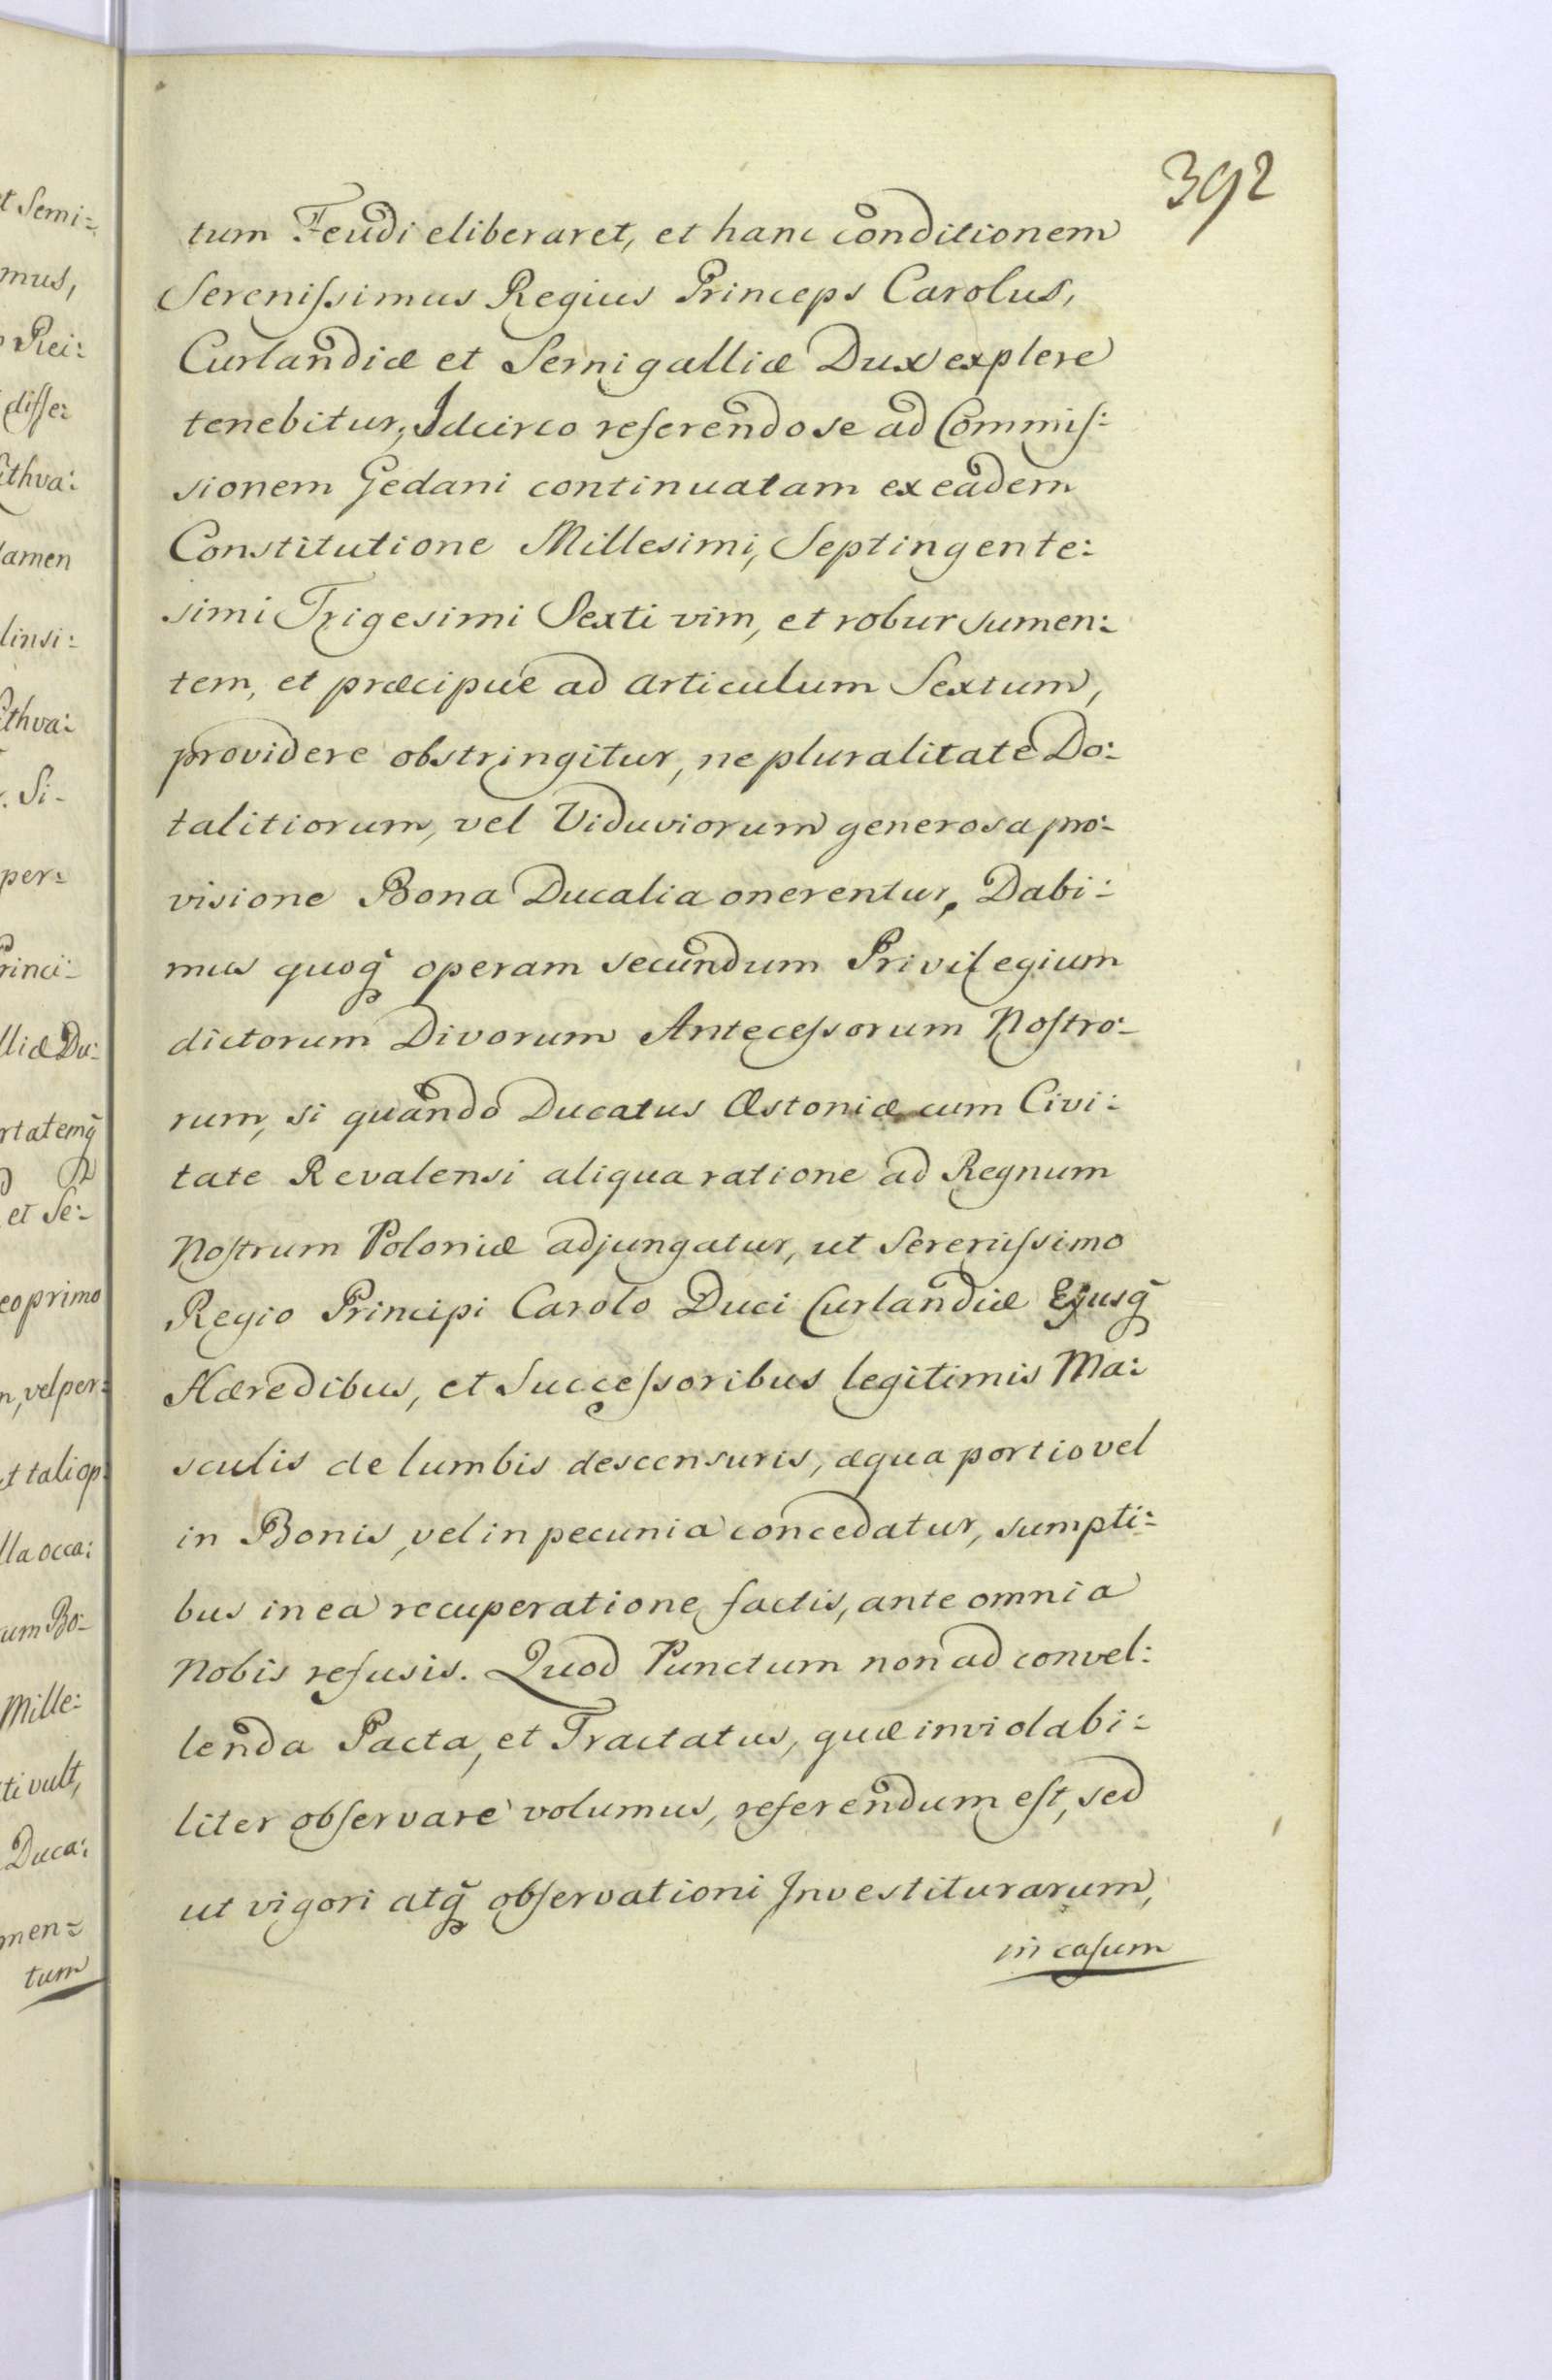 392
tum Feudi eliberaret, et hanc conditionem
Sereniſsimus Regius Princeps Carolus,
Curlandiæ et Semigalliæ Dux explere
tenebitur, Idcirco referendo se ad Commiſ:
sionem Gedani continuatam ex eadem
Constitutione Millesimi, Septingente:
simi Trigesimi Sexti vim, et robur sumen:
tem, et præcipue ad articulum Sextum,
providere obstringitur, ne pluralitate Do:
talitiorum, vel Viduviorum generosa pro:
visione Bona Ducalia onerentur, Dabi:
mus quoq̃ operam secundum Privilegium
dictorum Divorum Anteceſsorum Noſtro:
rum, si quando Ducatus Æstoniæ cum Civi:
tate Revalensi aliqua ratione ad Regnum
Noſtrum Poloniæ adjungatur, ut Sereniſsimo
Regio Principi Carolo Duci Curlandiæ Ejusq̃
Hæredibus, et Succeſsoribus legitimis Ma:
sculis de lumbis descensuris, æqua portio vel
in Bonis, vel in pecunia concedatur, sumpti:
bus in ea recuperatione factis, ante omnia
Nobis refusis. Quod Punctum non ad convel:
lenda Pacta, et Tractatus, quæ inviolabi:
liter obſervare volumus, referendum eſt, sed
ut vigori atq̃ obſervationi Investiturarum,
in caſum
t Semi:
mus,
diſſe:
thva:
amen
linsi:
thva:
. Si-
per:
rinci:
lliæ Du:
rtatemq̃
et Se:
eo primo
n, vel per:
t tali op:
lla occa:
um Bo:
Mille:
ti vult,
Duca:
men:
tum